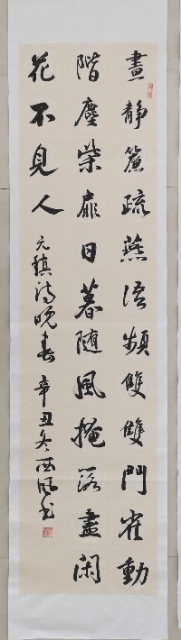 晝靜簾疏燕語頻雙雙鬥雀動
階塵柴扉日暮随風掩落盡閑
花不見人 元稹詩晚春 辛丑冬西風書